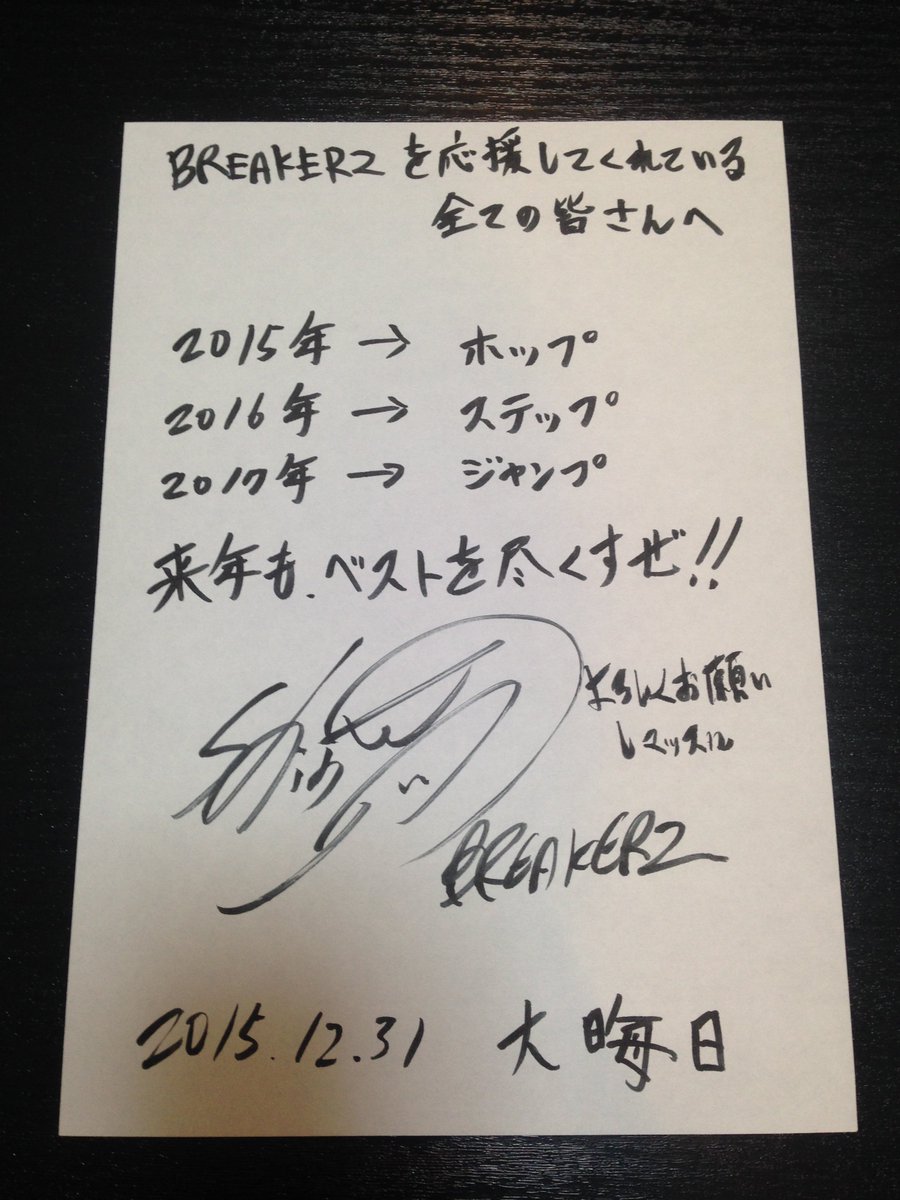 BREAKERZを応援してくれている
全ての皆さんへ
2015年 → ホップ
2016年 → ステップ
2017年 → ジャンプ
来年も、ベストを尽くすぜ!!
よろしくお願い
しマッスル
BREAKERZ
2015.12.31 大晦日